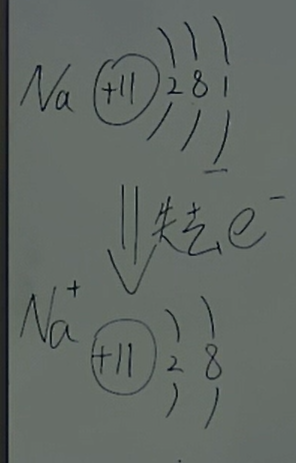 Na +11 2 8 1
失去e⁻
Na⁺ +11 2 8